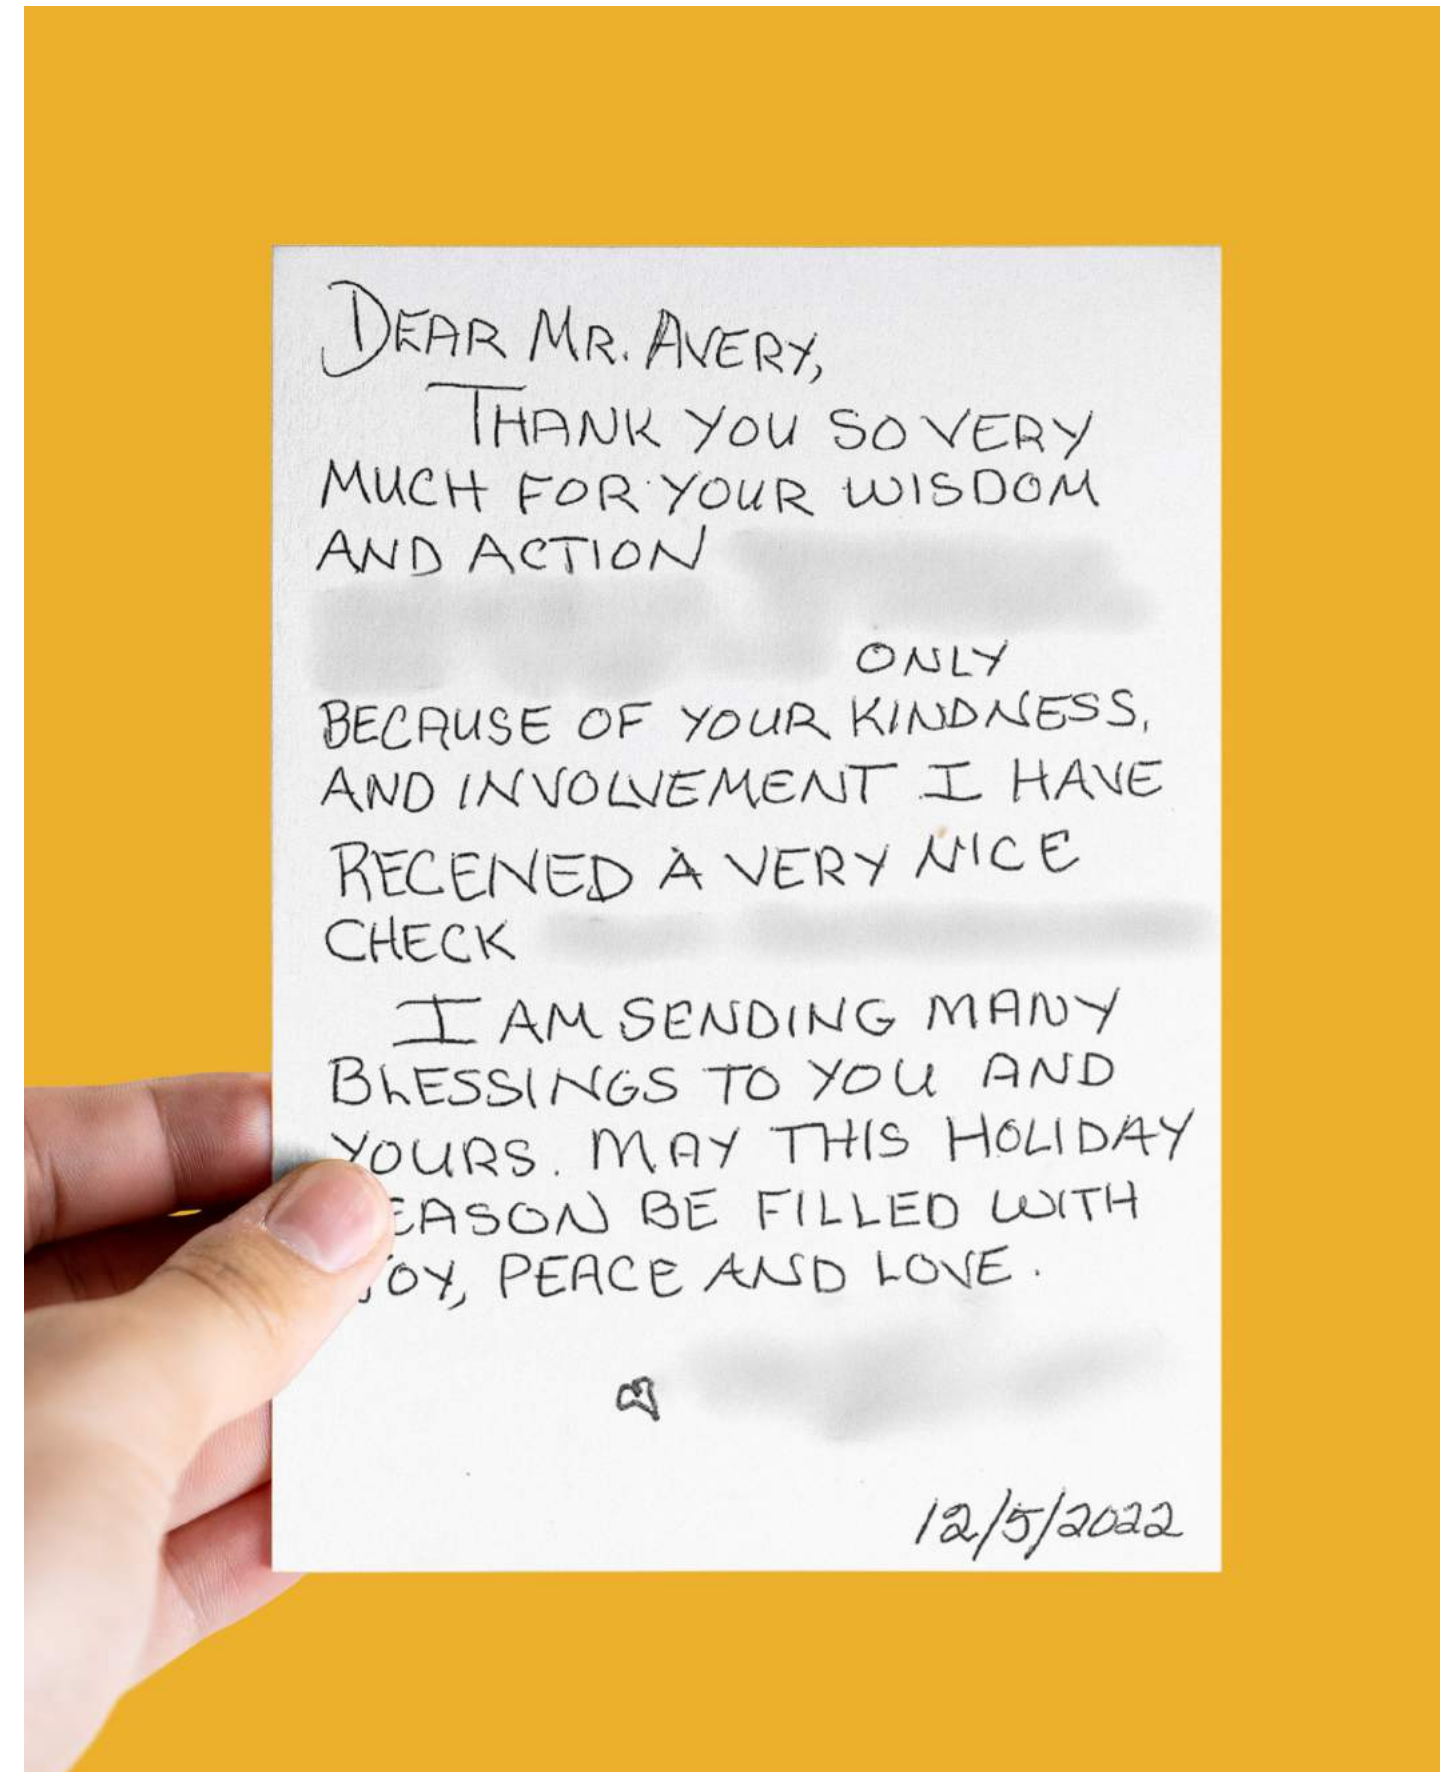 DEAR MR. AVERY,
THANK YOU SO VERY
MUCH FOR YOUR WISDOM
AND ACTION
ONLY
BECAUSE OF YOUR KINDNESS,
AND INVOLVEMENT I HAVE
RECEIVED A VERY NICE
CHECK
I AM SENDING MANY
BLESSINGS TO YOU AND
YOURS. MAY THIS HOLIDAY
EASON BE FILLED WITH
JOY, PEACE AND LOVE.
12/5/2022